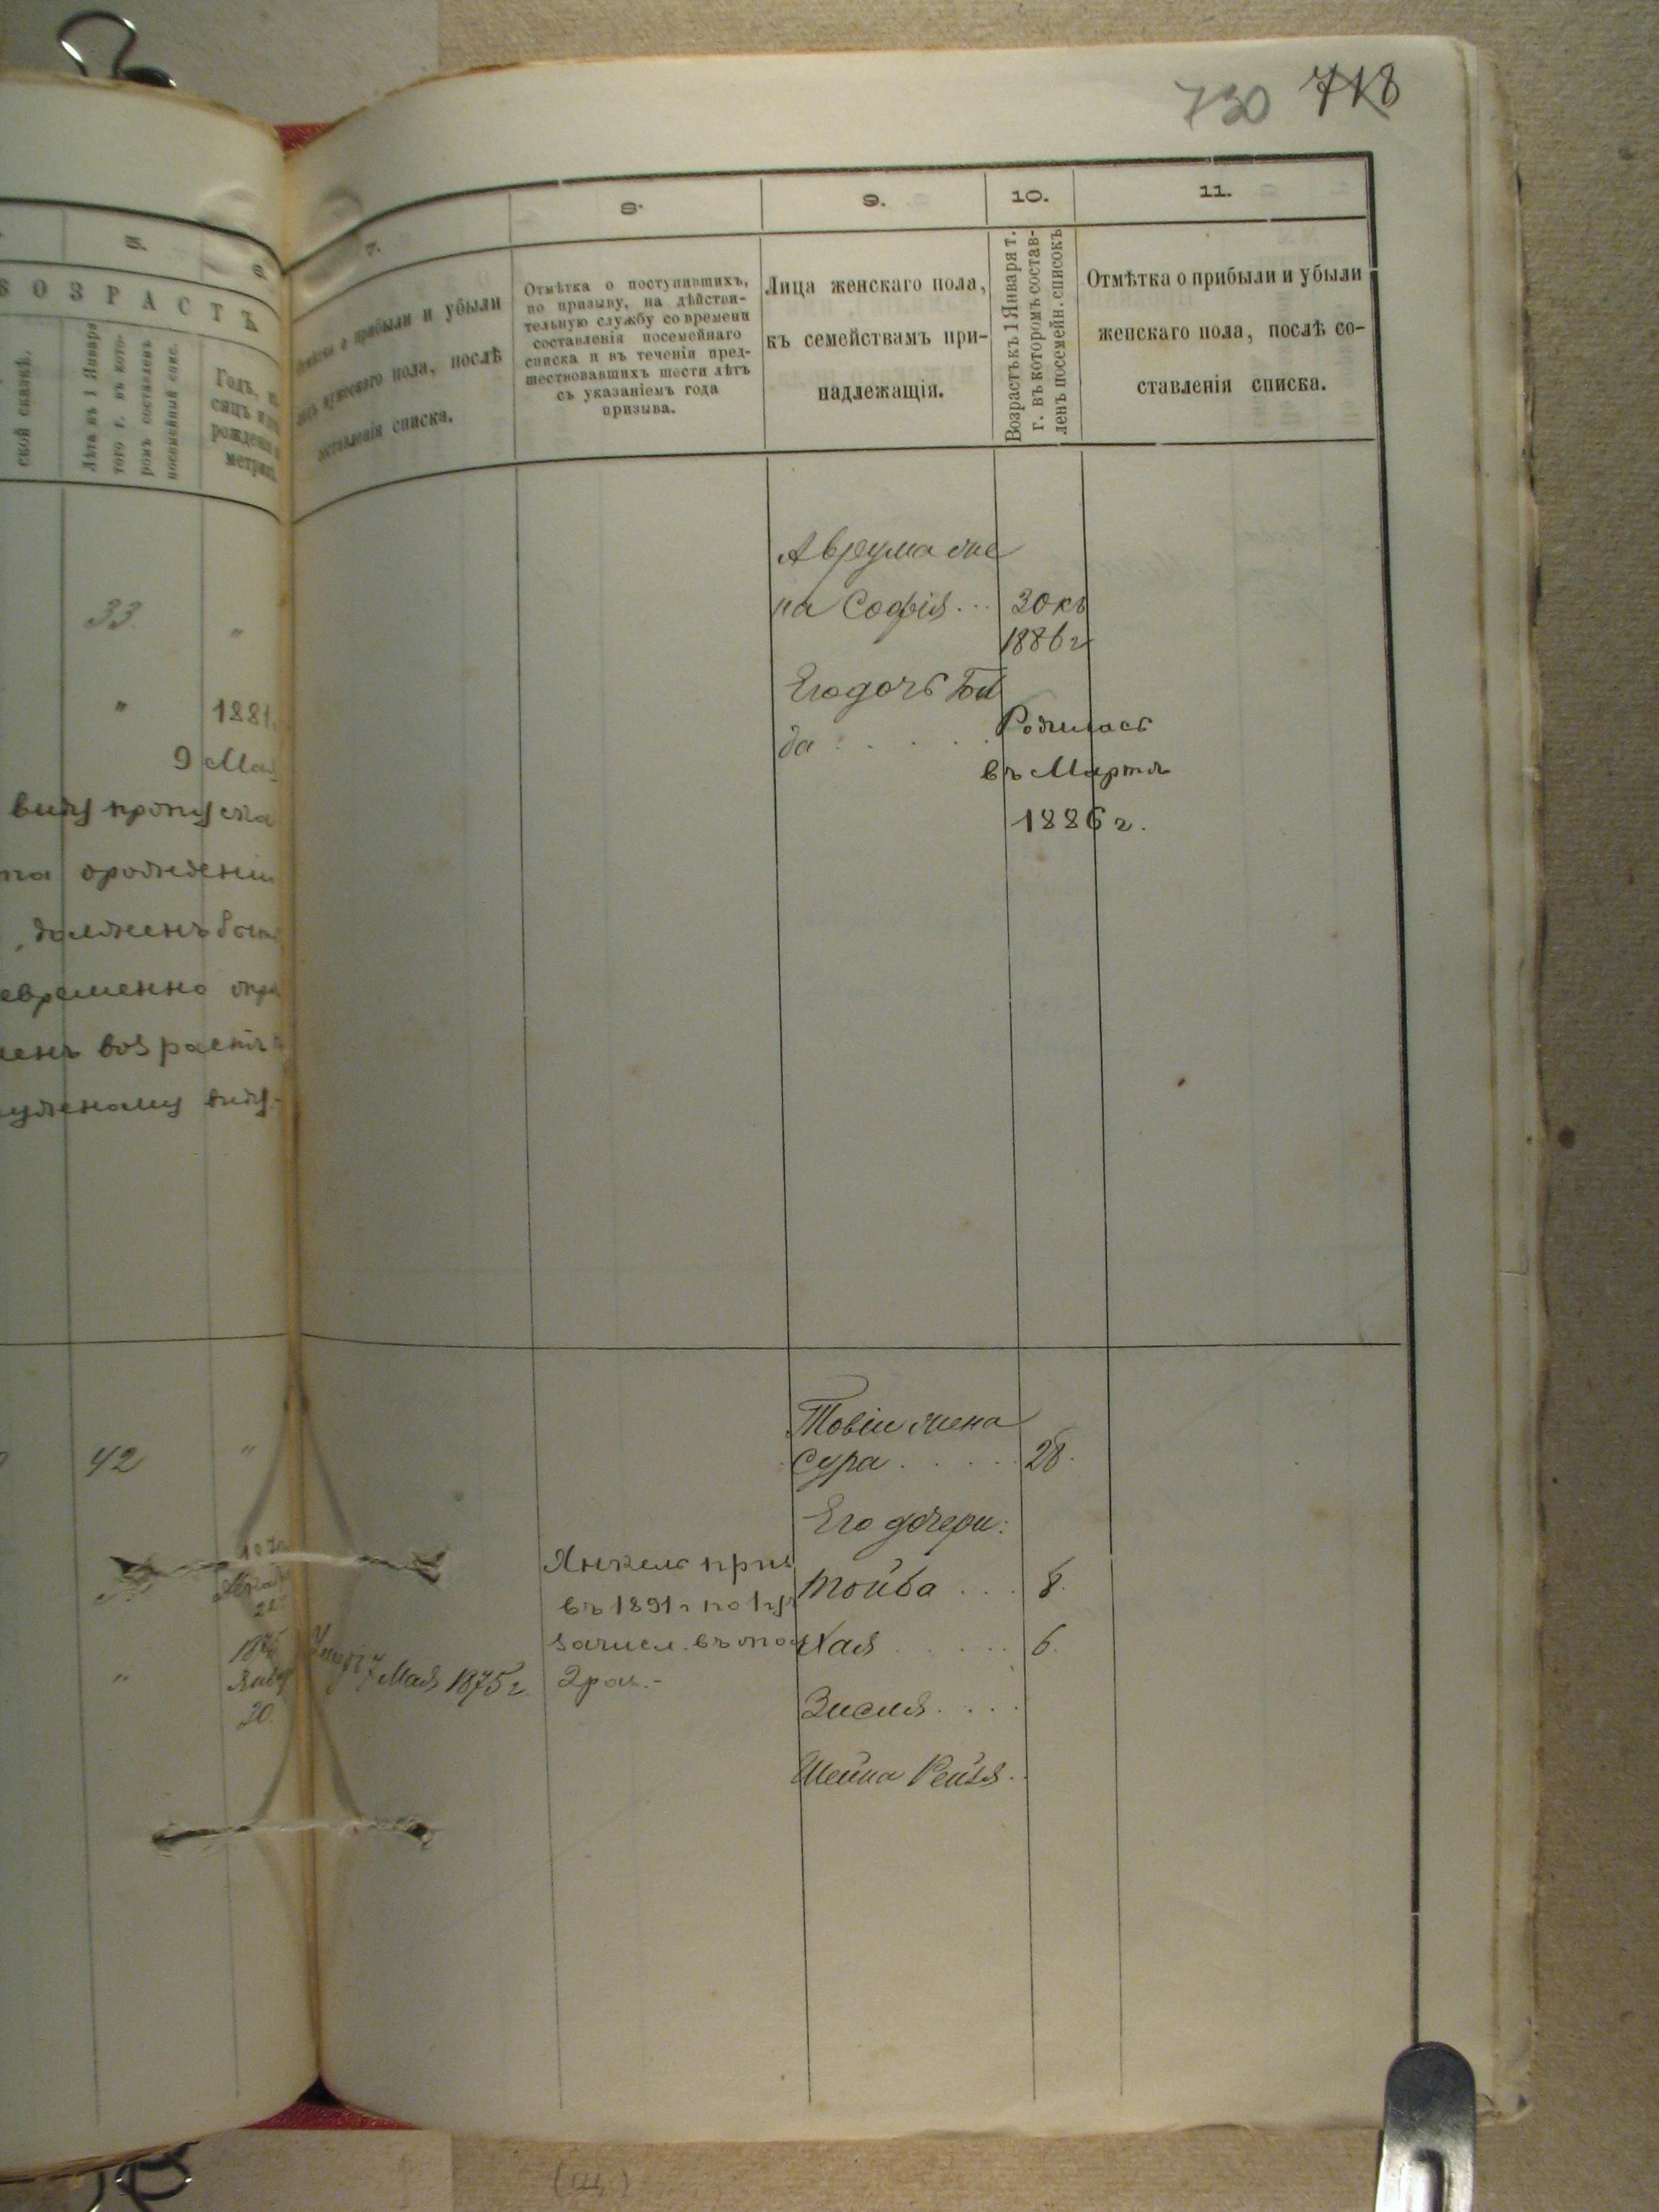 730 718
5.
6.
7.
8.
9.
10.
11.
ВОЗРАСТЪ
ской сказкѣ.
Лѣтъ къ 1 Января
того г. въ кото-
ромъ составленъ
посемейный спис.
Годъ, мѣ-
сяцъ и
рожденія
метрик
Отмѣтка о прибыли и убыли
лицъ мужескаго пола, послѣ
составленія списка.
Отмѣтка о поступившихъ,
по призыву, на дѣйстви-
тельную службу со времени
составленія посемейнаго
списка и въ теченіи пред-
шествовавшихъ шести лѣтъ
съ указаніемъ года
призыва.
Лица женскаго пола,
къ семействамъ при-
надлежащія.
Возрастъ къ 1 Января т.
г. въ которомъ состав-
ленъ посемейн. списокъ
Отмѣтка о прибыли и убыли
женскаго пола, послѣ со-
ставленія списка.
33
"
"
1881.
9 Мая
виду пропуска
о рожденіи
, долженъ быть
евременно опре
ленъ возрастъ
ужному виду.-
Аврума же
на Софія ...
30 къ
1886 г
Его дочь Бей
да . . . . .
Родилась
въ Мартѣ
1886 г.
42
"
22
"
1875
Янв
20
Умеръ 7 Мая 1875 г.
Янкель приз
въ 1891 г по 1 уч
зачисл. въ опол
2 раз.-
Товіи жена
Сура . . . . . 28.
Его дочери:
Тойба . . . 8.
Хая . . . . . 6.
Зисля . . . .
Шейна Рейзя . .